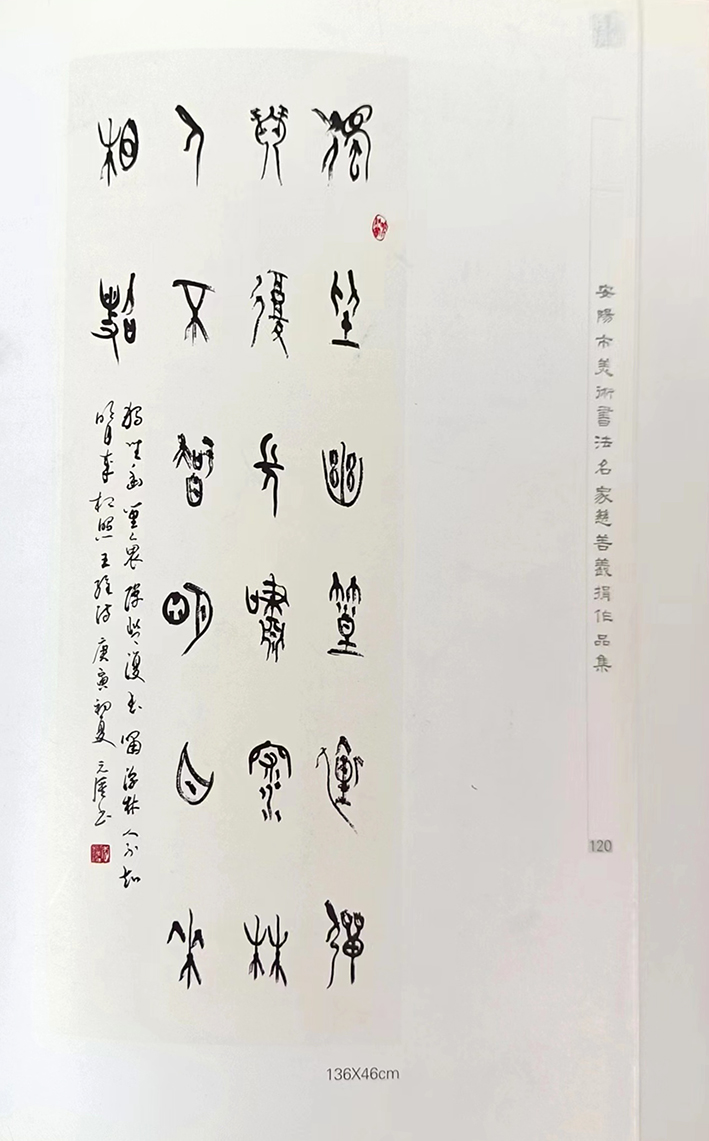 獨坐幽篁裏彈
琴復長嘯深林
人不知明月來
相照
獨坐幽篁裏彈琴復長嘯深林人不知
明月來相照王維詩庚寅初夏
安陽市美術書法名家慈善義捐作品集
120
136X46cm